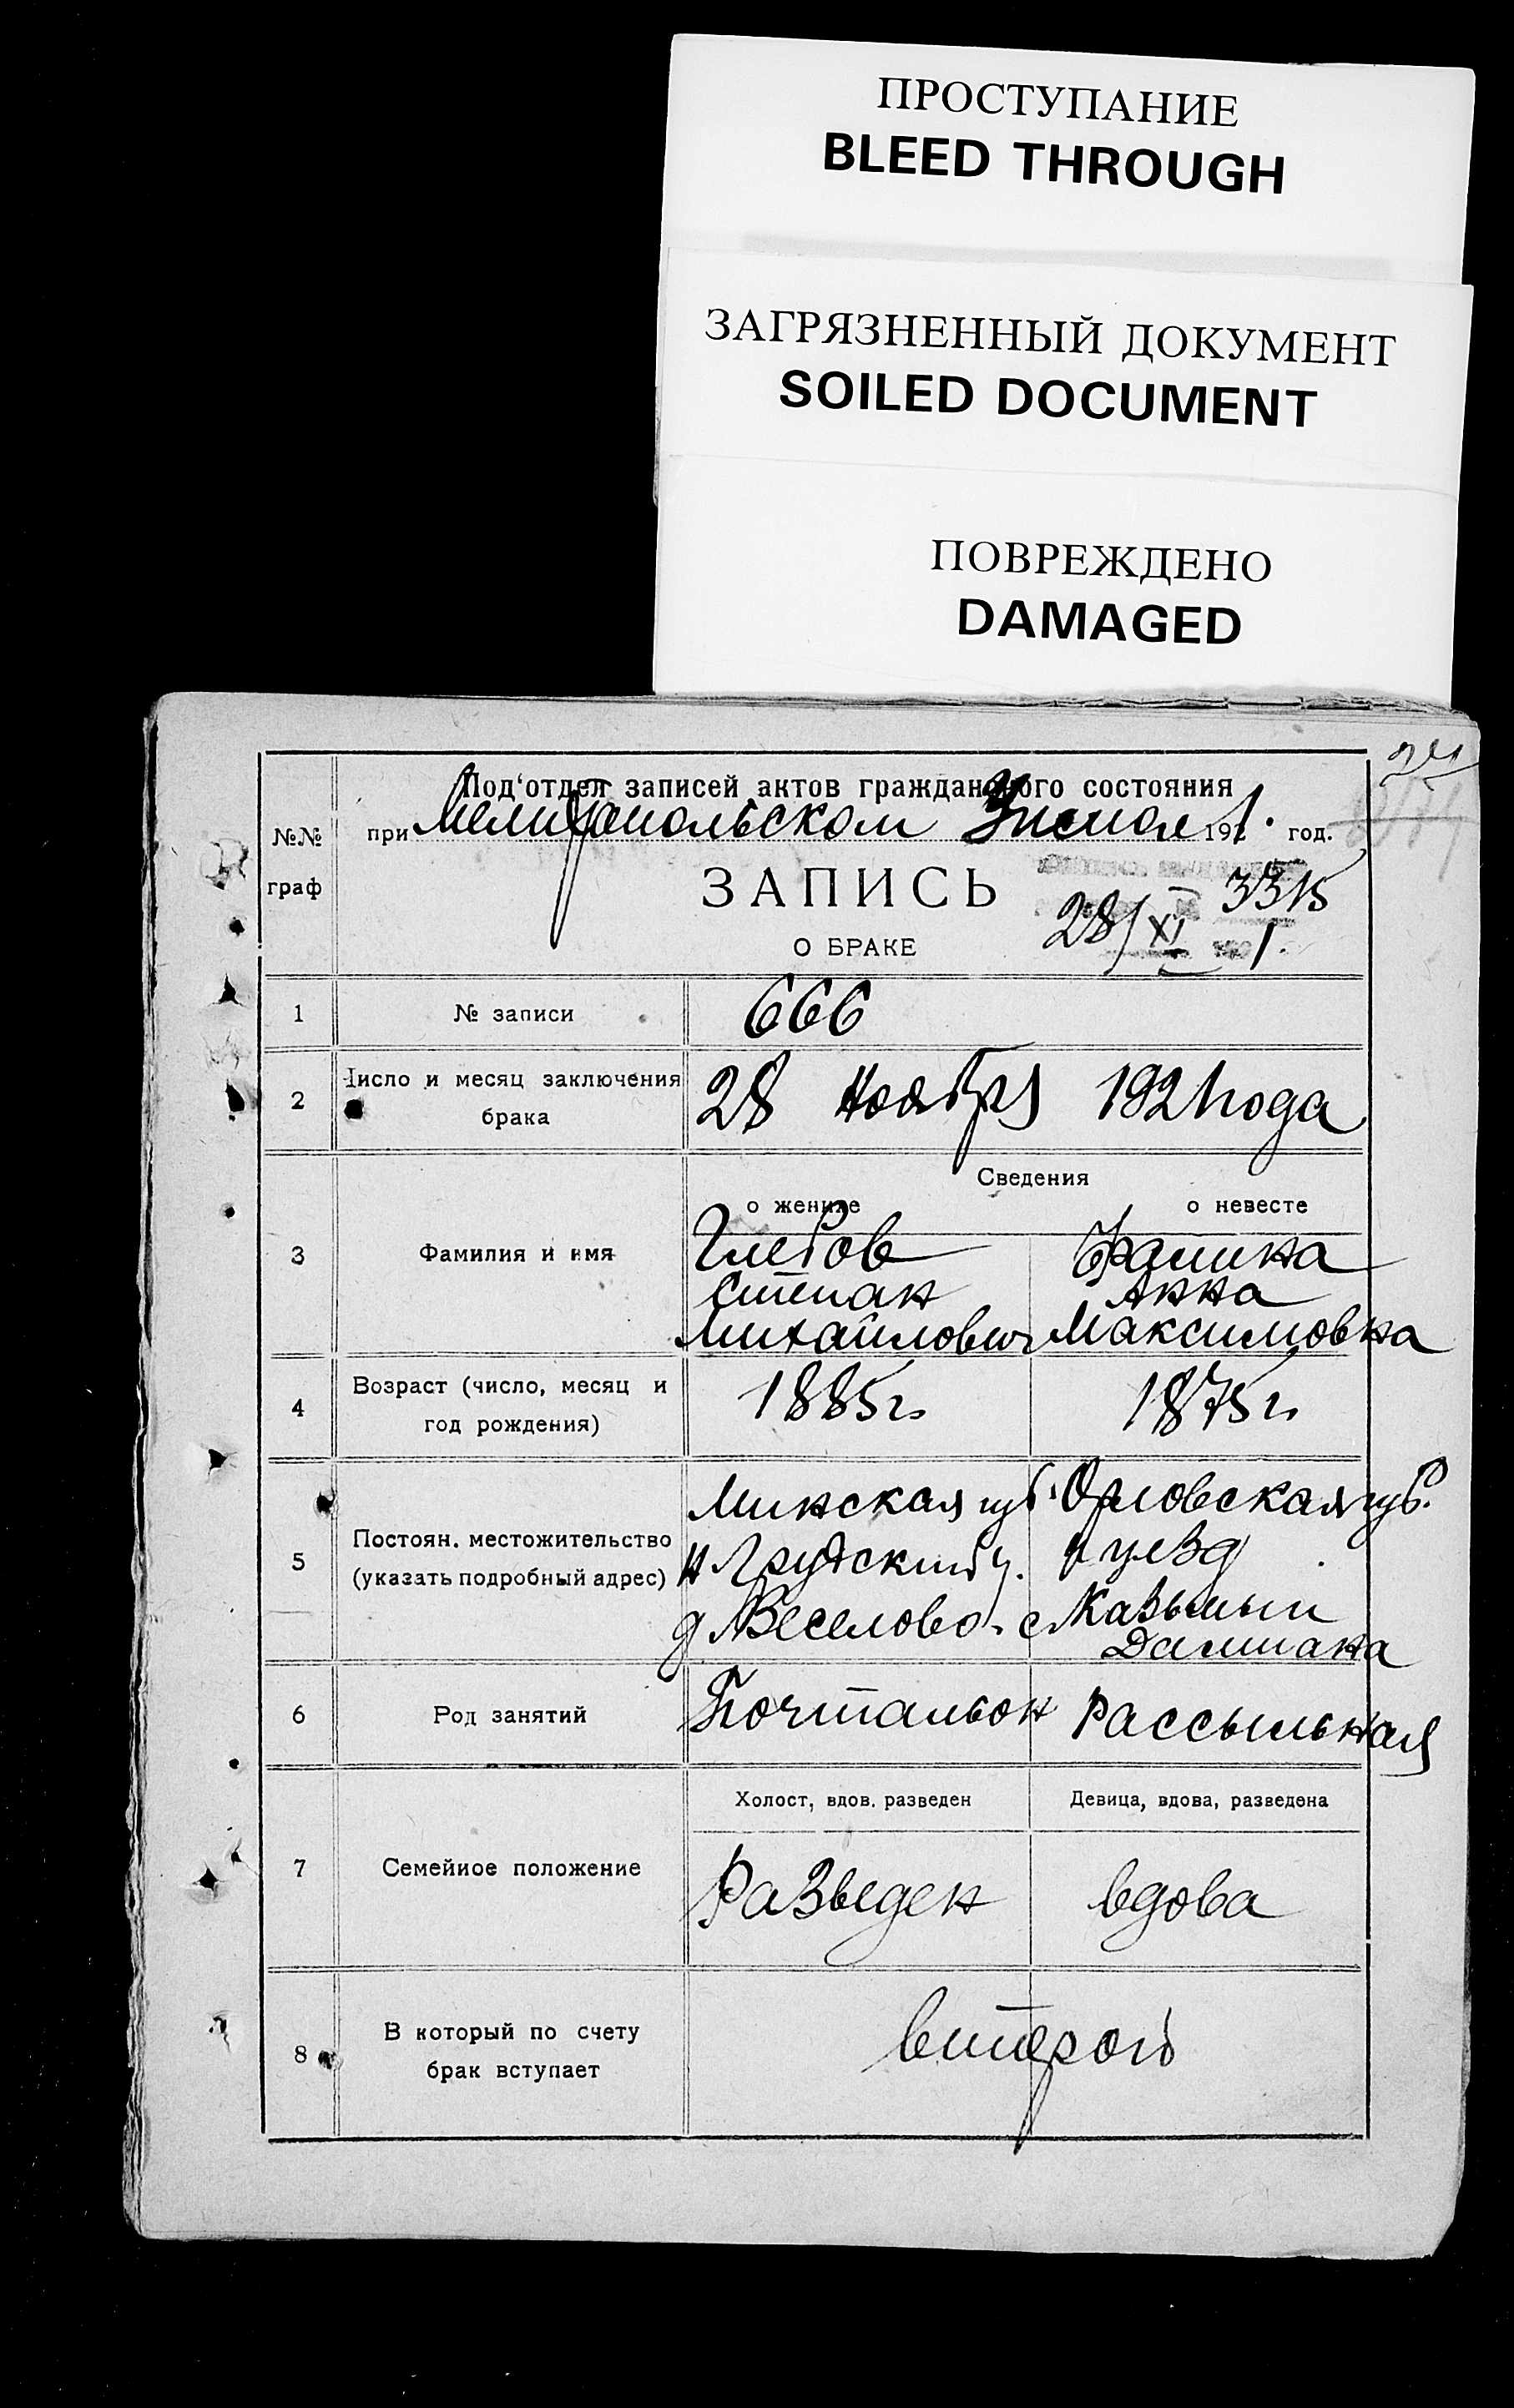 ПРОСТУПАНИЕ
BLEED THROUGH
ЗАГРЯЗНЕННЫЙ ДОКУМЕНТ
SOILED DOCUMENT
ПОВРЕЖДЕНО
DAMAGED
Под'отдел записей актов гражданского состояния
при Мелитопольском 1921. год.
№№ граф
ЗАПИСЬ
3315
28/XI 1.
О БРАКЕ
1 № записи 666
2 Число и месяц заключения брака 28 Ноября 1921 года
Сведения
о женихе о невесте
3 Фамилия и имя
Глебов
Степан Анна
Михайлович Максимовна
4 Возраст (число, месяц и год рождения) 1885 г. 1875 г.
5 Постоян. местожительство (указать подробный адрес)
Минская губ. Орловская губ.
у. уезд
д Веселово. с
6 Род занятий Почтальон Рассыльная
Холост, вдов. разведен Девица, вдова, разведена
7 Семейное положение Разведен вдова
8 В который по счету брак вступает второй